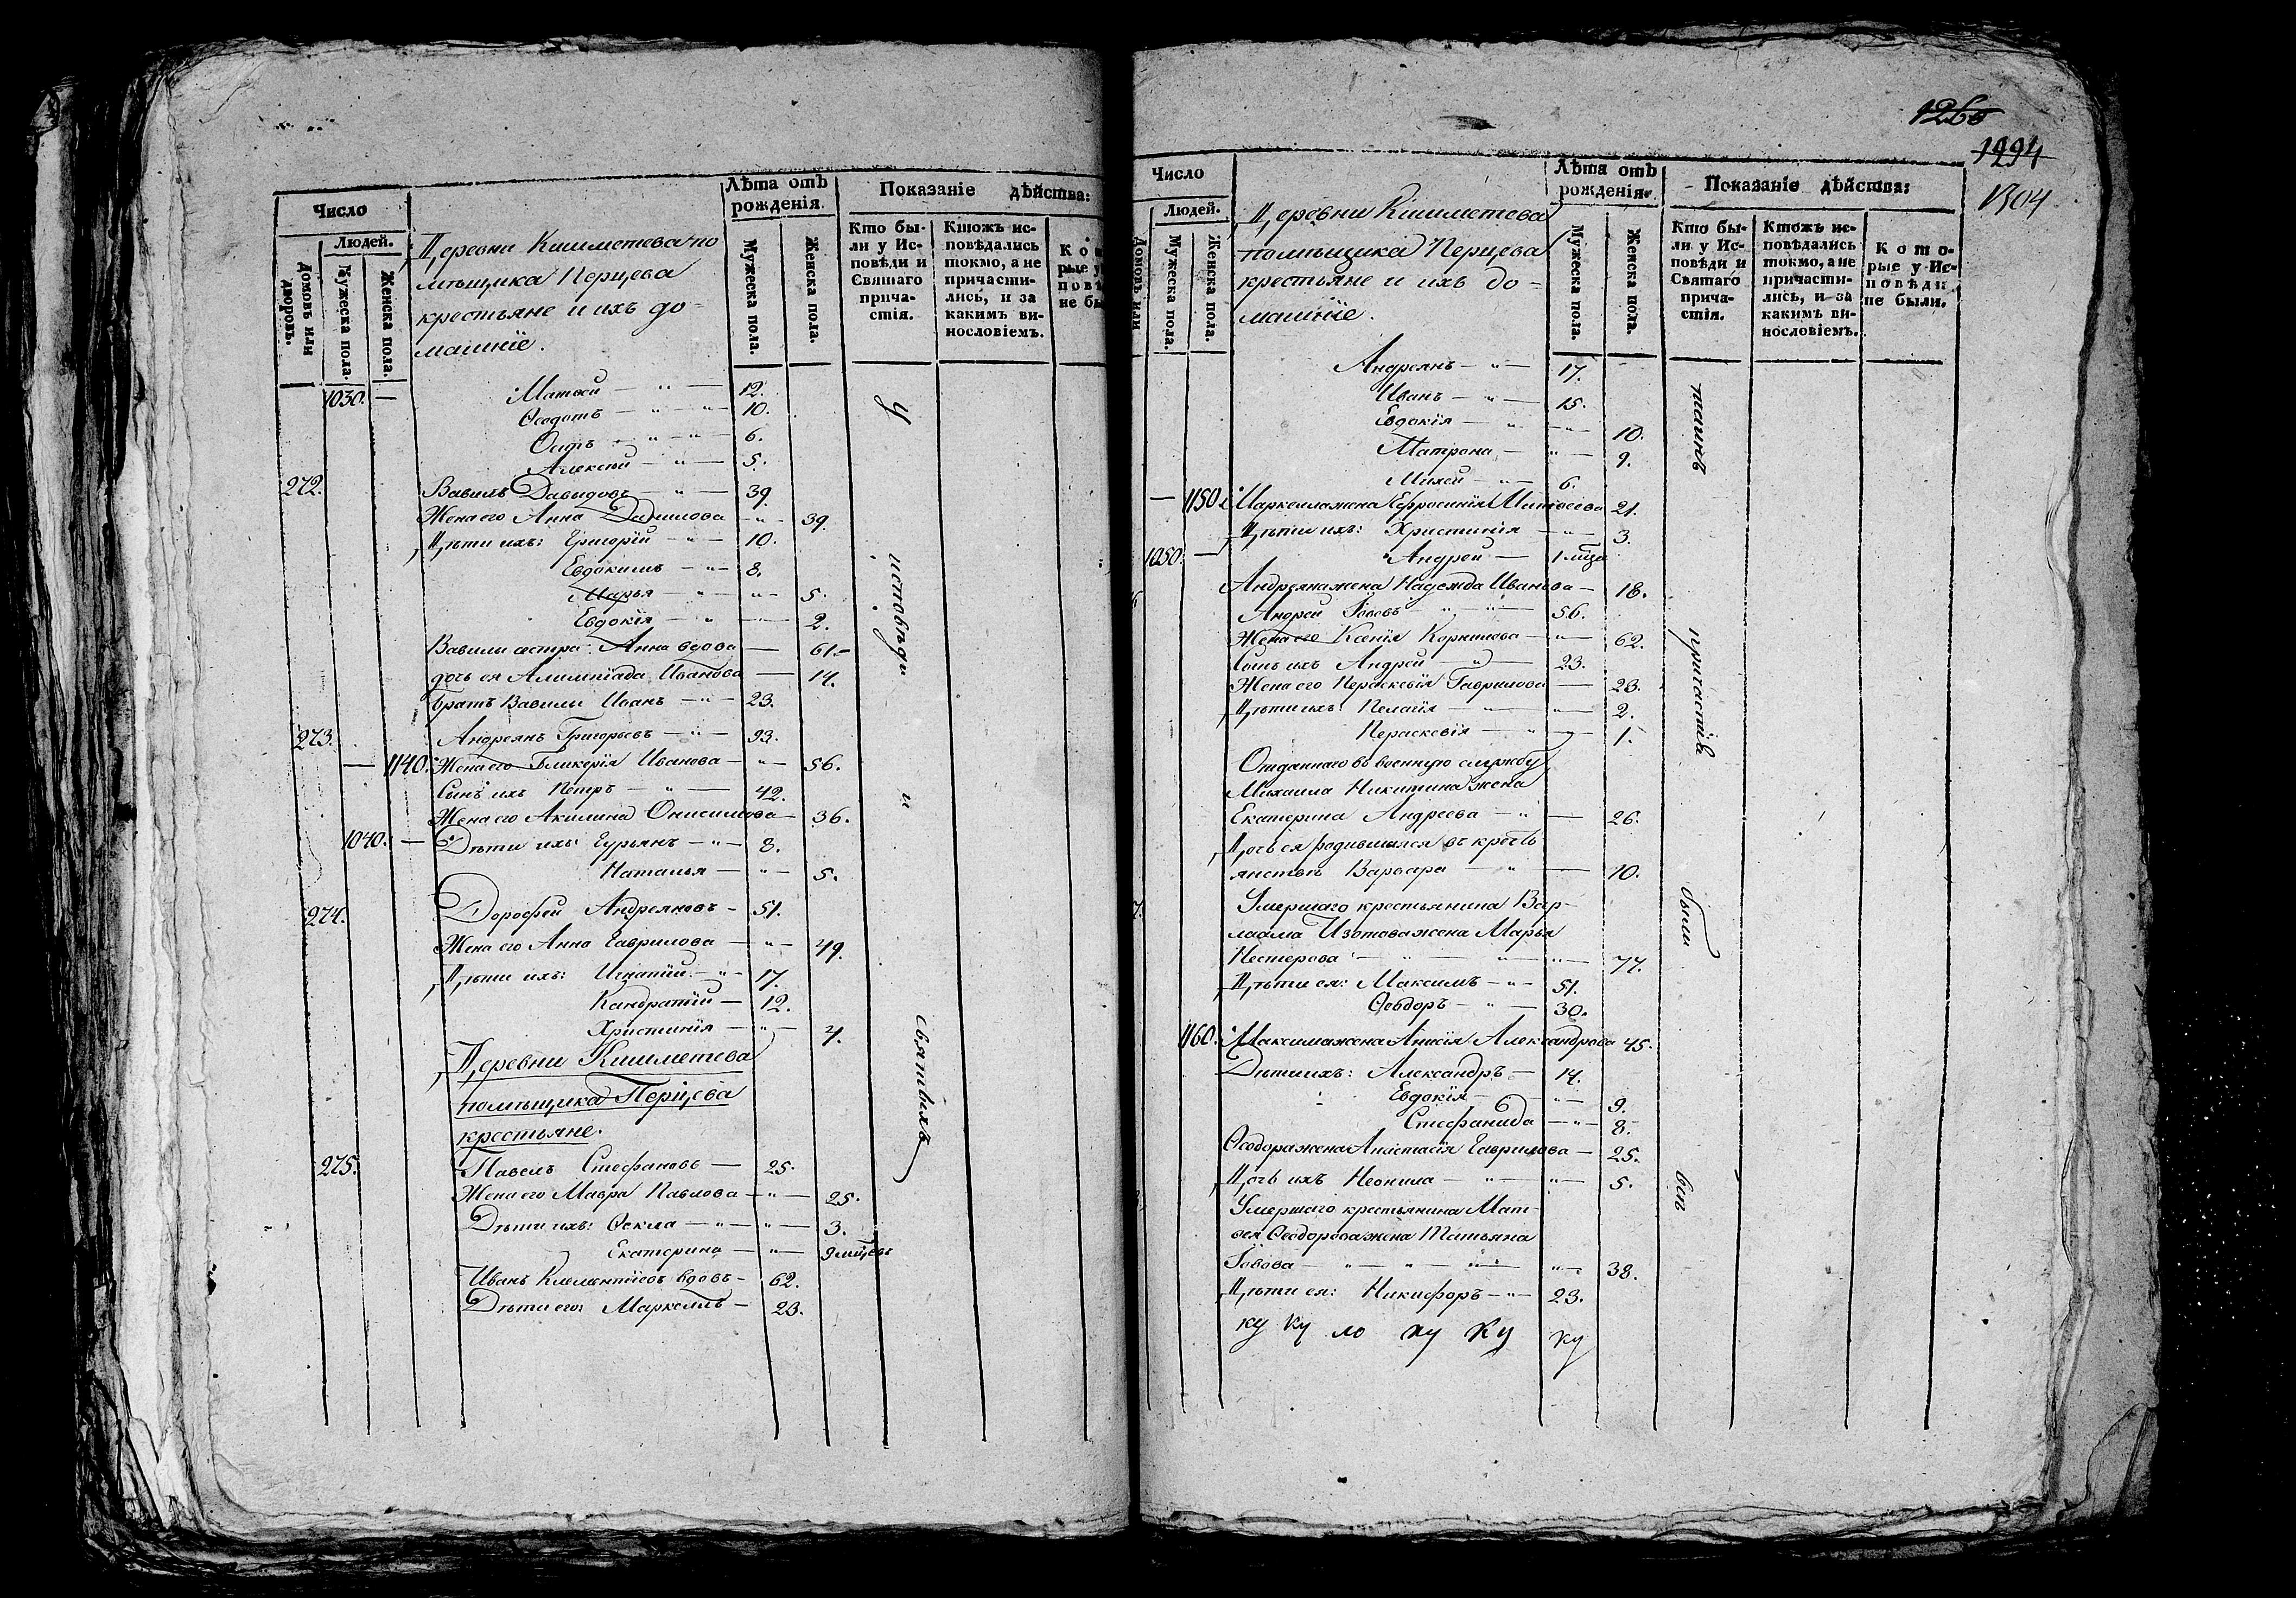 Число
Людей.
Домовъ или дворовъ.
Мужеска пола.
Женска пола.
Деревни Кишметева по
мѣщика Перцева
крестьяне и ихъ до-
машніе.
Лѣта отъ рожденія.
Мужеска пола.
Женска пола.
Показаніе дѣйства:
Кто бы-
ли у Ис-
повѣди и
Святаго
прича-
стія.
Ктожъ ис-
повѣдались
токмо, а не
причасти-
лись, и за
какимъ ви-
нословіемъ.
1030. — Матвей — " — 12.
Ѳеодотъ — " — " — 10.
Осипъ — " — " — 6.
Алексей — " — 5.
272. Вавилъ Давыдовъ — " — 39.
Жена его Анна Данилова — " — 39.
Дѣти ихъ: Григорій — " — 10.
Евдокимъ — " — 8.
Марья — " — " — 5.
Евдокія — " — 2.
Вавилы сестра: Анна вдова — 61.
дочь ея Алимпіада Иванова — 14.
Братъ Вавилы Иванъ — " — 23.
273. Андреянъ Григорьевъ — " — 93.
— 1140. Жена его Гликерія Иванова — " — 56.
Сынъ ихъ Петръ — " — 42.
Жена его Акилина Онисимова — 36.
1040. — Дѣти ихъ: Гурьянъ — " — 8.
Наталья — " — 5.
274. Дорофей Андреяновъ — 51.
Жена его Анна Гаврилова — " — 49.
Дѣти ихъ: Игнатій — " — 17.
Кандратій — 12.
Христинія — " — 4.
Деревни Кишметева
помѣщика Перцева
крестьяне.
275. Павелъ Стефановъ — 25.
Жена его Мавра Павлова — " — 25.
Дѣти ихъ: Ѳекла — " — " — 3.
Екатерина — " — 9 мцевъ
Иванъ Клементіевъ вдовъ — 62.
Дѣти его: Маркеллъ — 23.
У исповѣди и святыхъ
1265
1294
1304
Число
Людей.
Домовъ или
Мужеска пола.
Женска пола.
Деревни Кишметева
помѣщика Перцева
крестьяне и ихъ до-
машніе.
Лѣта отъ рожденія.
Мужеска пола.
Женска пола.
Показаніе дѣйства:
Кто бы-
ли у Ис-
повѣди и
Святаго
прича-
стія.
Ктожъ ис-
повѣдались
токмо, а не
причасти-
лись, и за
какимъ ви-
нословіемъ.
Кото-
рые у Ис-
повѣди
не были.
Андреянъ — " — 17.
Иванъ — " — 15.
Евдокія — " — " — 10.
Матрона — " — 9.
Михей — " — 6.
— 1150. Маркелла жена Ефросинія Матвеева 21.
Дѣти ихъ: Христинія — " — 3.
1050. — Андрей — 1 мца
Андреяна жена Надежда Иванова — 18.
Андрей Іововъ — " — 56.
Жена его Ксенія Корнилова — " — 62.
Сынъ ихъ Андрей — " — 23.
Жена его Параскевія Гаврилова — 23.
Дѣти ихъ: Пелагія — " — " — 2.
Параскевія — " — 1.
Отданнаго въ военную службу
Михаила Никитина жена
Екатерина Андреева — " — 26.
Дочь ея родившаяся въ кресть
янствѣ Варвара — " — 10.
Умершаго крестьянина Вар-
лаама Изотова жена Марья
Нестерова — " — " — " — 77.
Дѣти ея: Максимъ — " — 51.
Ѳеодоръ — " — 30.
1160. Максима жена Анисія Александрова 45.
Дѣти ихъ: Александръ — 14.
Евдокія — " — 9.
Стефанида — " — 8.
Ѳеодора жена Анастасія Гаврилова — 25.
Дочь ихъ Неонила — " — " — 5.
Умершаго крестьянина Мат-
вея Ѳеодорова жена Татьяна
Іовова — " — " — " — 38.
Дѣти ея: Никифоръ — " — 23.
ку ку ло ку ку ку
таинъ причастія были всѣ